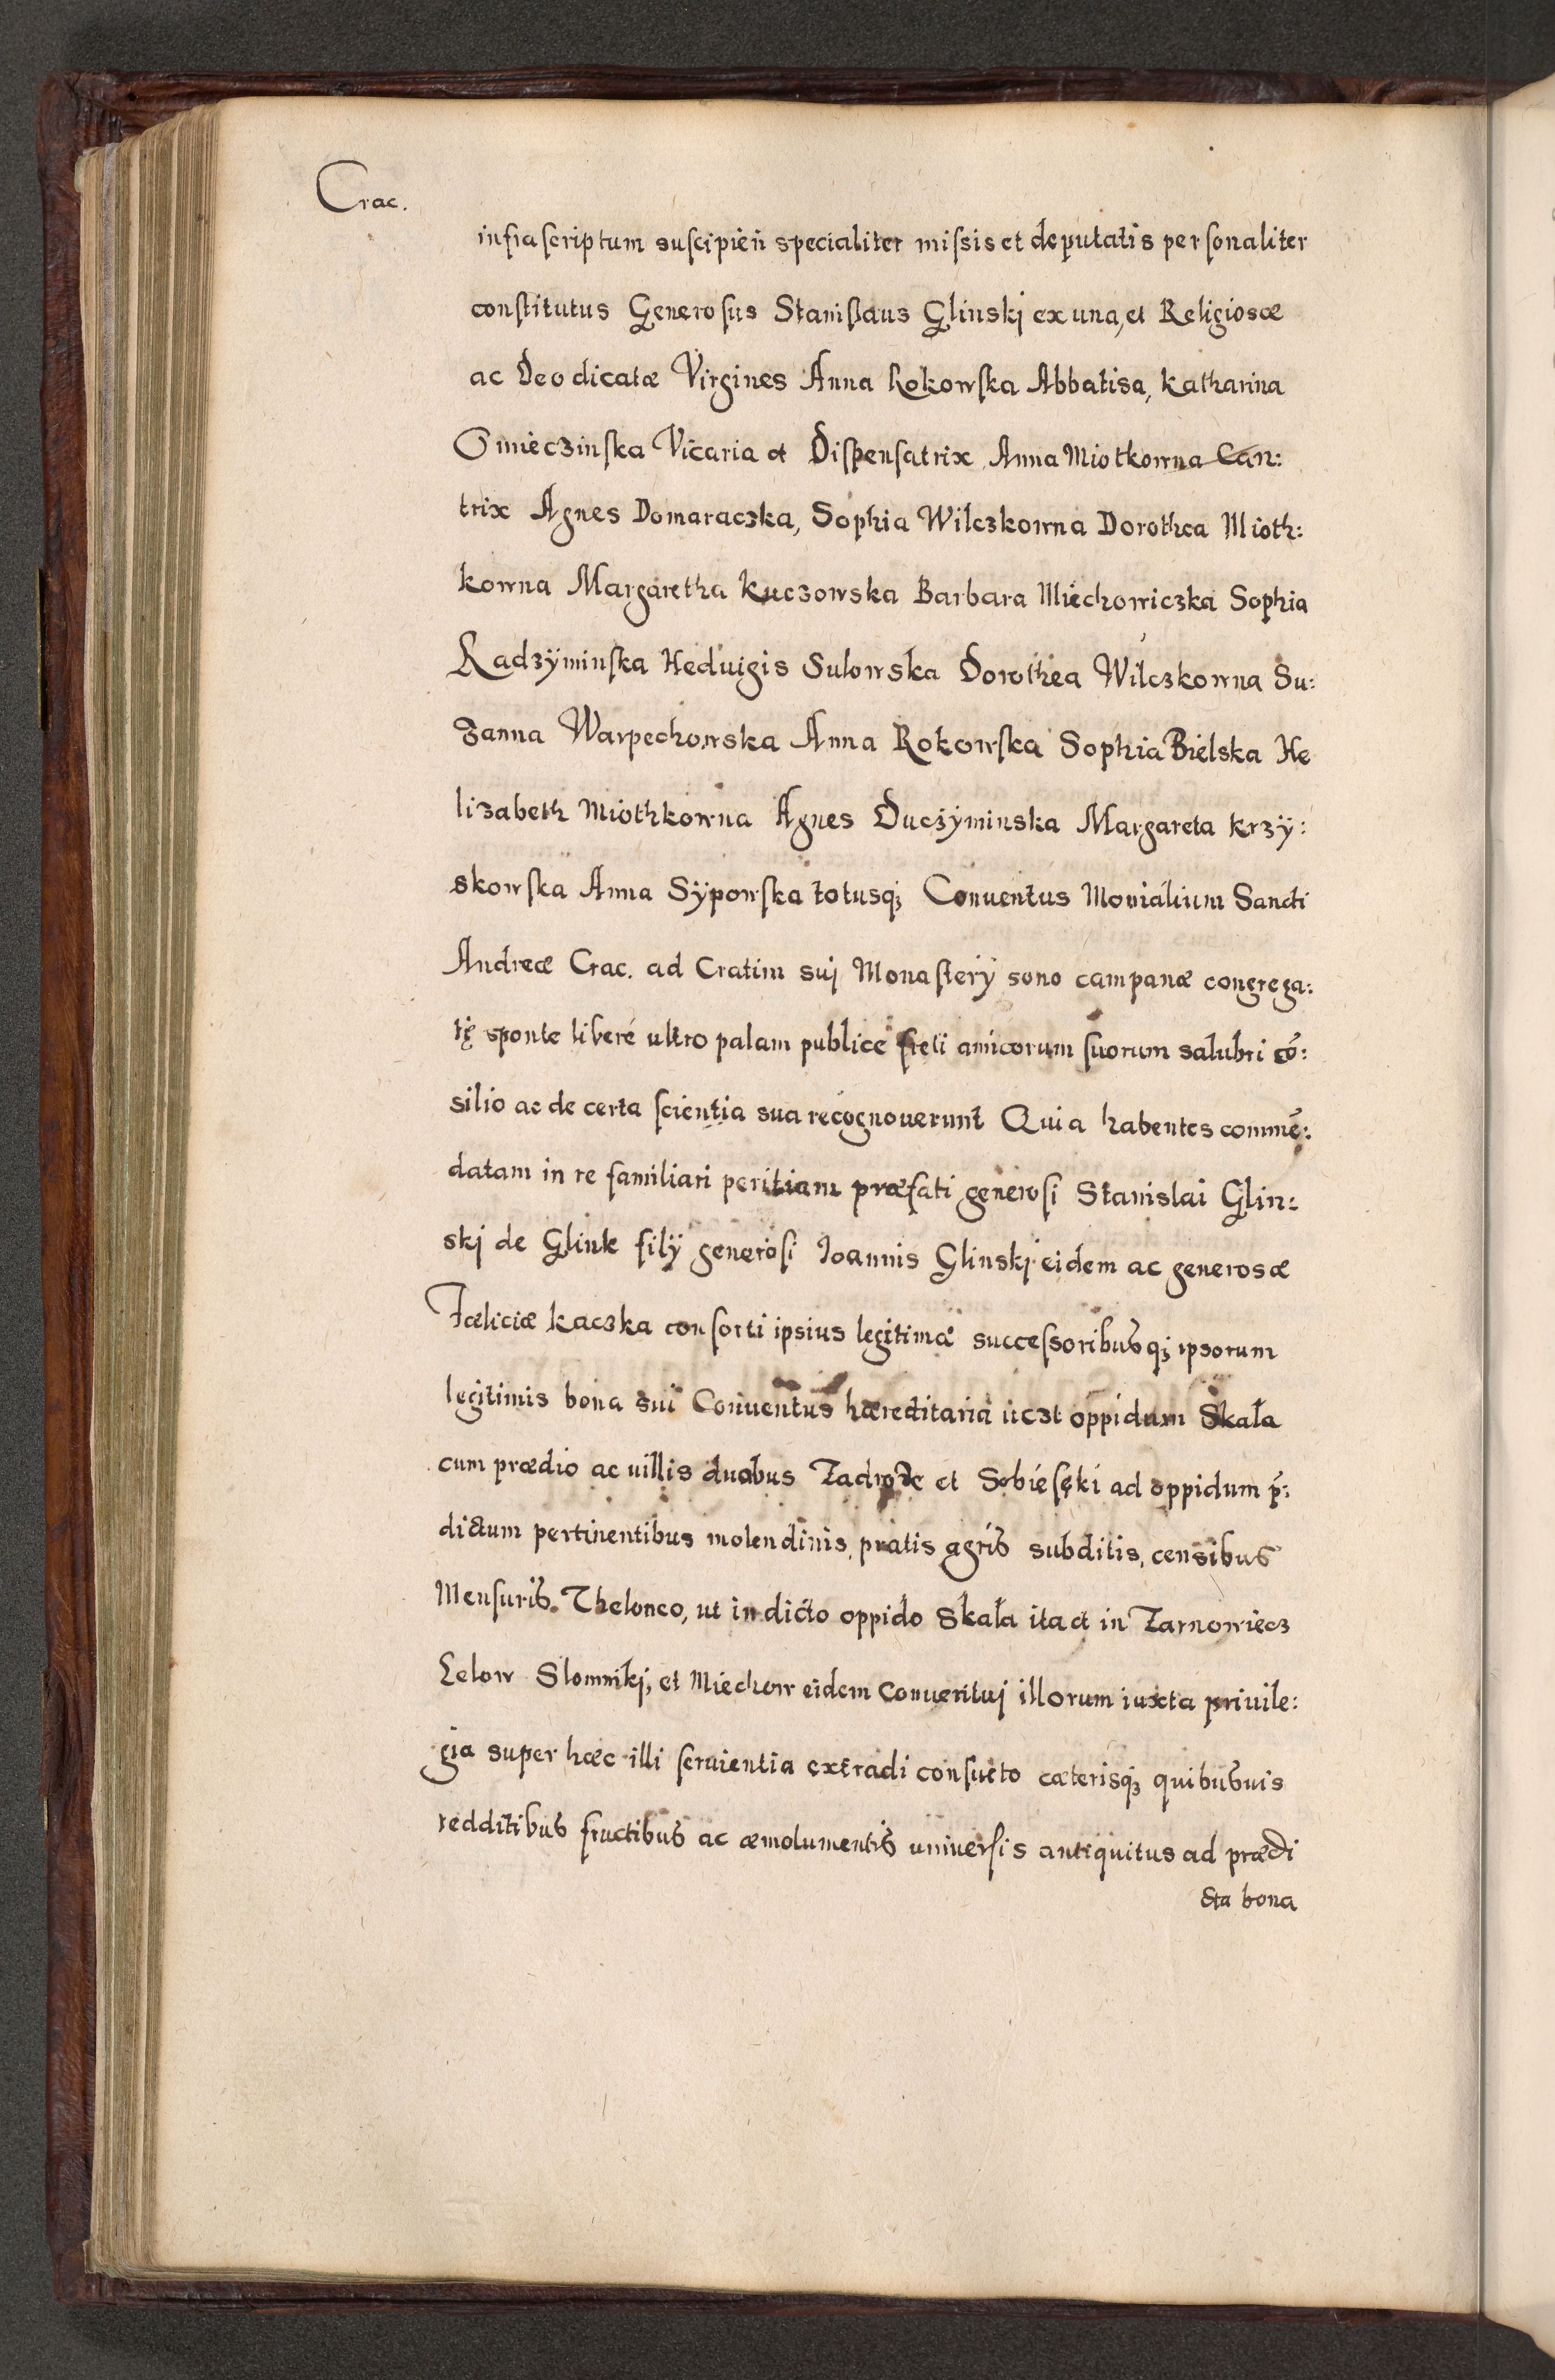 Crac.
infrascriptum suscipień specialiter missis et deputatis personaliter
constitutus Generosus Stanislaus Glinskj ex una, et Religiosæ
ac Deo dicatæ Virgines Anna Rokowska Abbatisa, Katharina
Omieczinska Vicaria et Dispensatrix Anna Miotkowna Can:
trix Agnes Domaraczka, Sophia Wilczkowna Dorothea Mioth:
kowna Margaretha Kuczowska Barbara Miechowiczka Sophia
Radzÿminska Heduigis Sulowska Dorothea Wilczkowna Su:
zanna Warpechowska Anna Rokowska Sophia Bielska He
lizabeth Miothkowna Agnes Duczÿminska Margareta Krzÿ:
skowska Anna Sÿpowska totusq; Conuentus Monialium Sancti
Andreæ Crac. ad Cratim suj Monasterÿ sono campanæ congrega:
tę sponte liberé ultro palam publice freti amicorum suorum salubri cō:
silio ac de certa scientia sua recognouerunt Quia habentes commē:
datam in re familiari peritiam præfati generosi Stanislai Glin:
skj de Glink filÿ generosi Joannis Glinskj eidem ac generosæ
Fæliciæ Kaczka consorti ipsius legitimæ successoribusq; ipsorum
legitimis bona sui Conuentus hæreditaria uczt oppidum Skała
cum prædio ac uillis duabus Zadroze et Sobiesęki ad oppidum p̄:
dictum pertinentibus molendinis, pratis agris subditis, censibus
Mensuris. Theloneo, ut in dicto oppido Skała ita et in Tarnowiecz
Lelow Slomnikj, et Miechow eidem Conuentuj illorum iuxta priuile:
gia super hæc illi seruientia extradi consueto cæterisq; quibusuis
redditibus fructibus ac æmolumentis uniuersis antiquitus ad prædi
cta bona